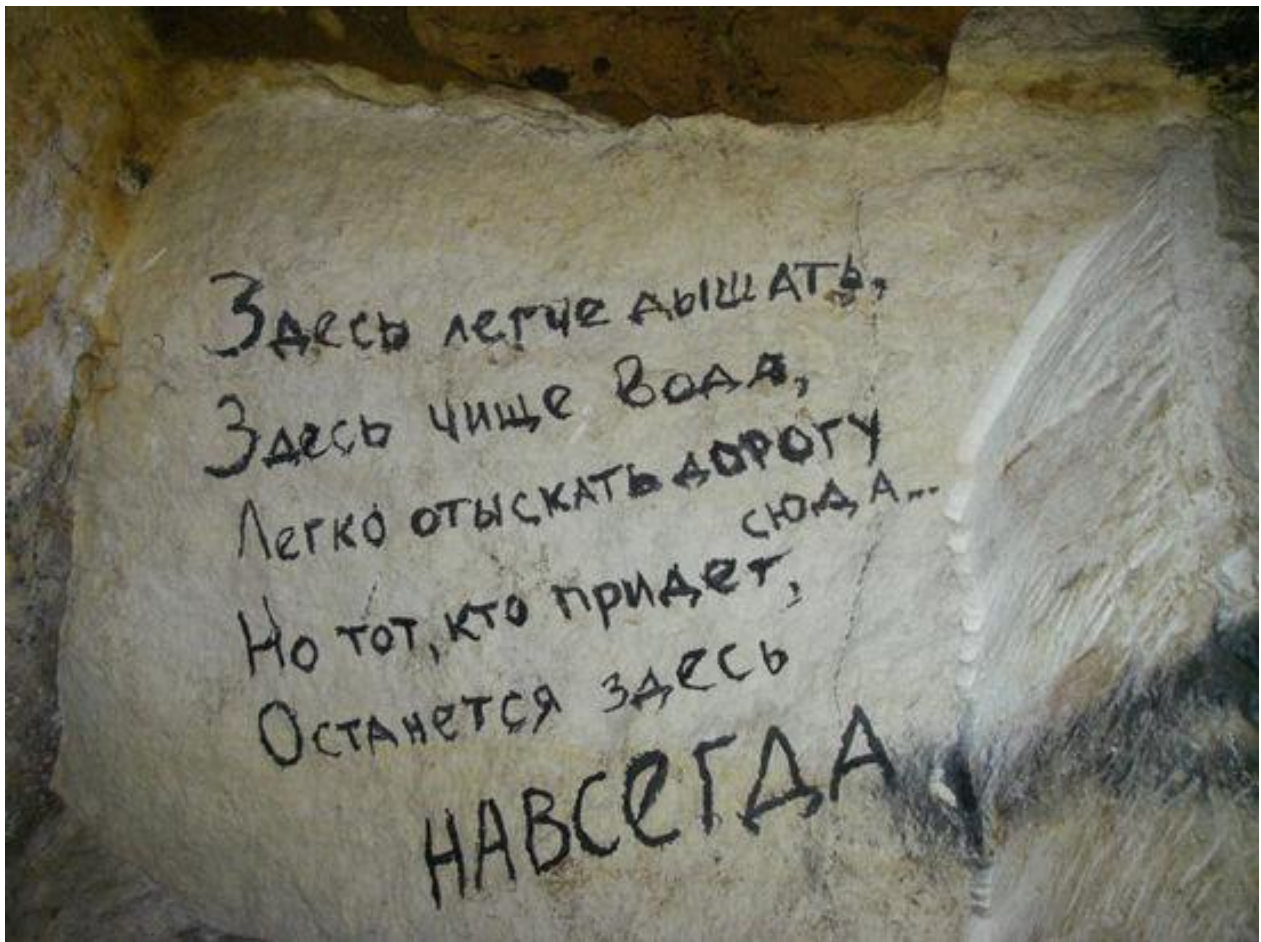 Здесь легче дышать,
Здесь чище вода,
Легко отыскать дорогу
сюда...
Но тот, кто придет,
Останется здесь
НАВСЕГДА